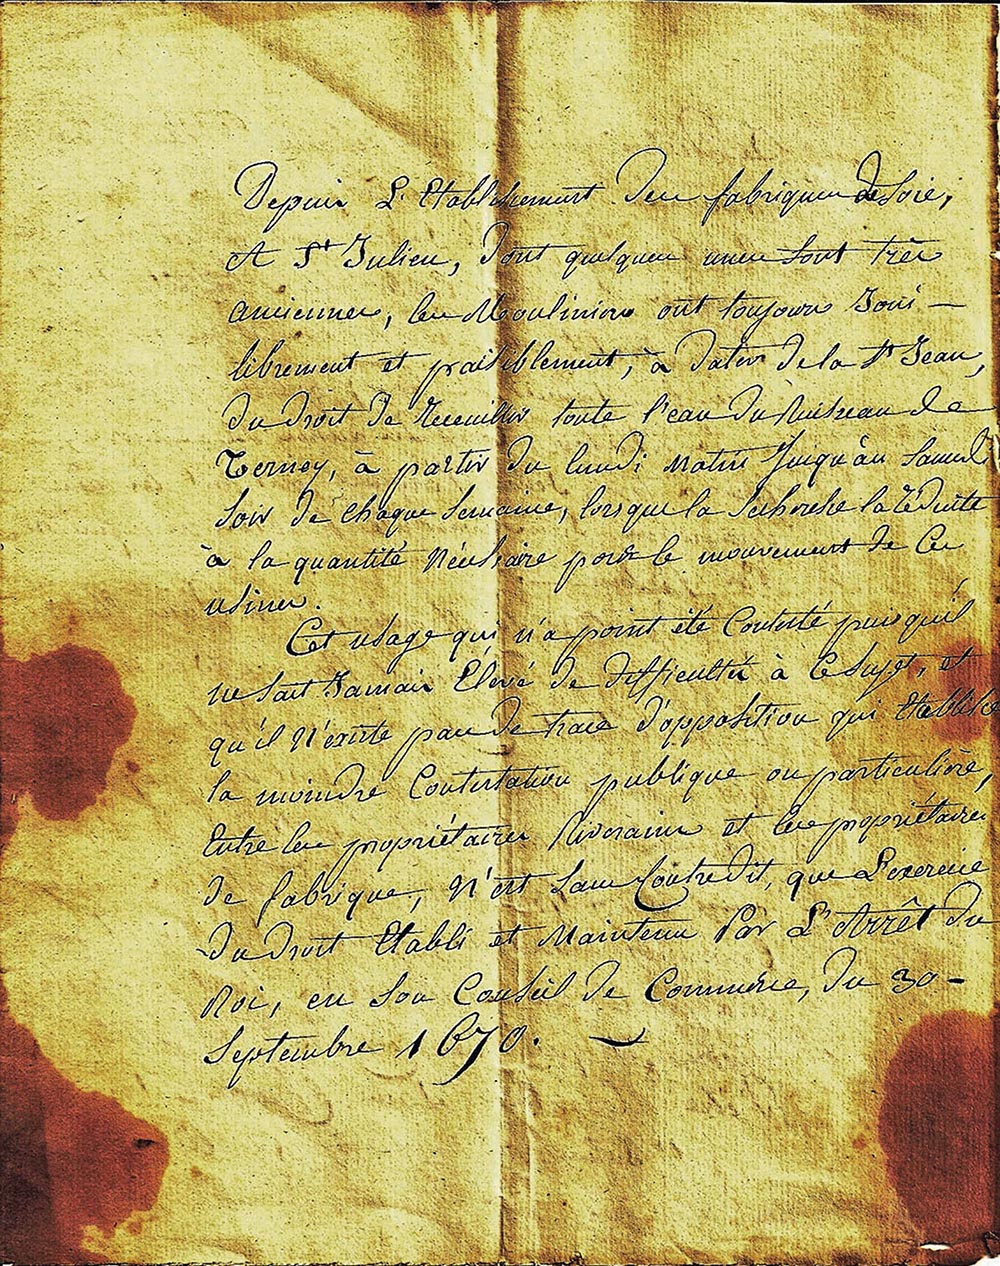 Depuis L'Etablissement des fabriques de Soie,
A St Julien, dont quelques unes sont très
anciennes, les Mouliniers ont toujours Joui -
librement et paisiblement, à dater de la St Jean,
du droit de Receuillir toute l'eau du Ruisseau de
Ternay, à partir du lundi Matin Jusqu'au Samedi
soir de chaque semaine, lorsque la Secheresse la Réduite
à la quantité Nécessaire pour le mouvement de Ces
usines.
Cet usage qui n'a point été Contesté puisqu'il
ne sait Jamais Elévé de difficultés à Ce sujet, et
qu'il N'existe pas de trace d'opposition qui Etablisse
la moindre Contestation publique ou particulière,
Entre les propriétaires Riverains et les propriétaires
de fabriques, N'est sans Contredit, que L'exercice
du droit Etabli et Maintenu Par L'Arrêt du
Roi, en son Conseil de Commerce, du 30 -
Septembre 1670.